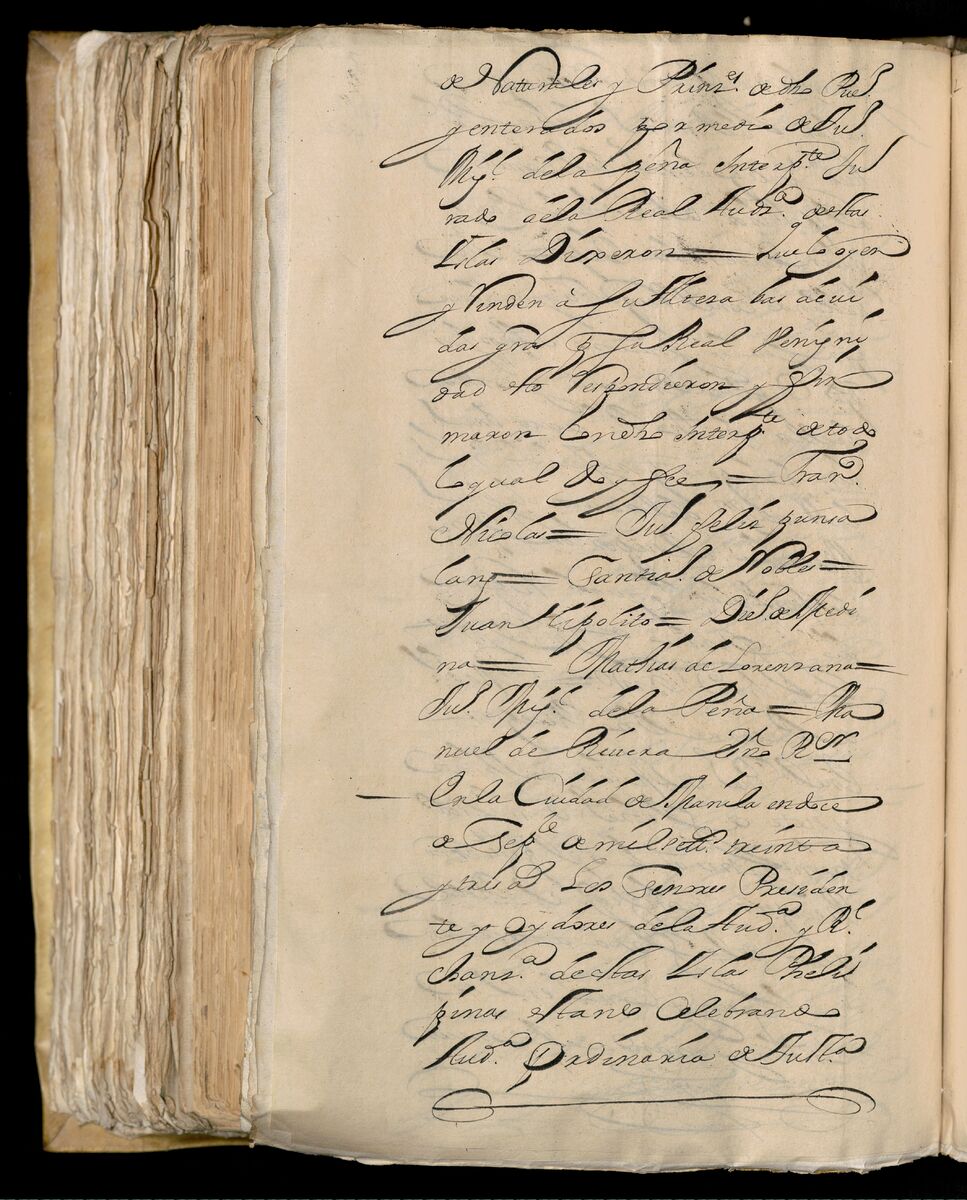 de Naturales y Prinz.es de dho Pue.
y enterados por medio de Ju.
Mig.l de la peña Interp.te Ju
rado de la Real Aud.a de estas
Islas Dixeron = Que lo oyen
y Rinden à Su Alteza las devi
das gra.s p.r Su Real Venigni
dad esto respondieron y fir
maron Con dho Interp.te de todo
lo qual doy fee = Fran.co
Nicolas = Ju.n feliz punsa
lang = Santia.o de Nobles =
Juan Hipolito = Die.o de Medi
na = Mathias de Lorenzana =
Ju.n Mig.l de la Peña = Ma
nuel de Rivera Ss.no R.l
En la Ciudad de Manila en doce
de Sep.re de mil sett.os treinta
y tres a.s Los Señores Presiden
te y Oydores de la Aud.a y R.l
Chanz.a de estas Islas Pheli
pinas estando Celebrando
Aud.a Ordinaria de Just.a